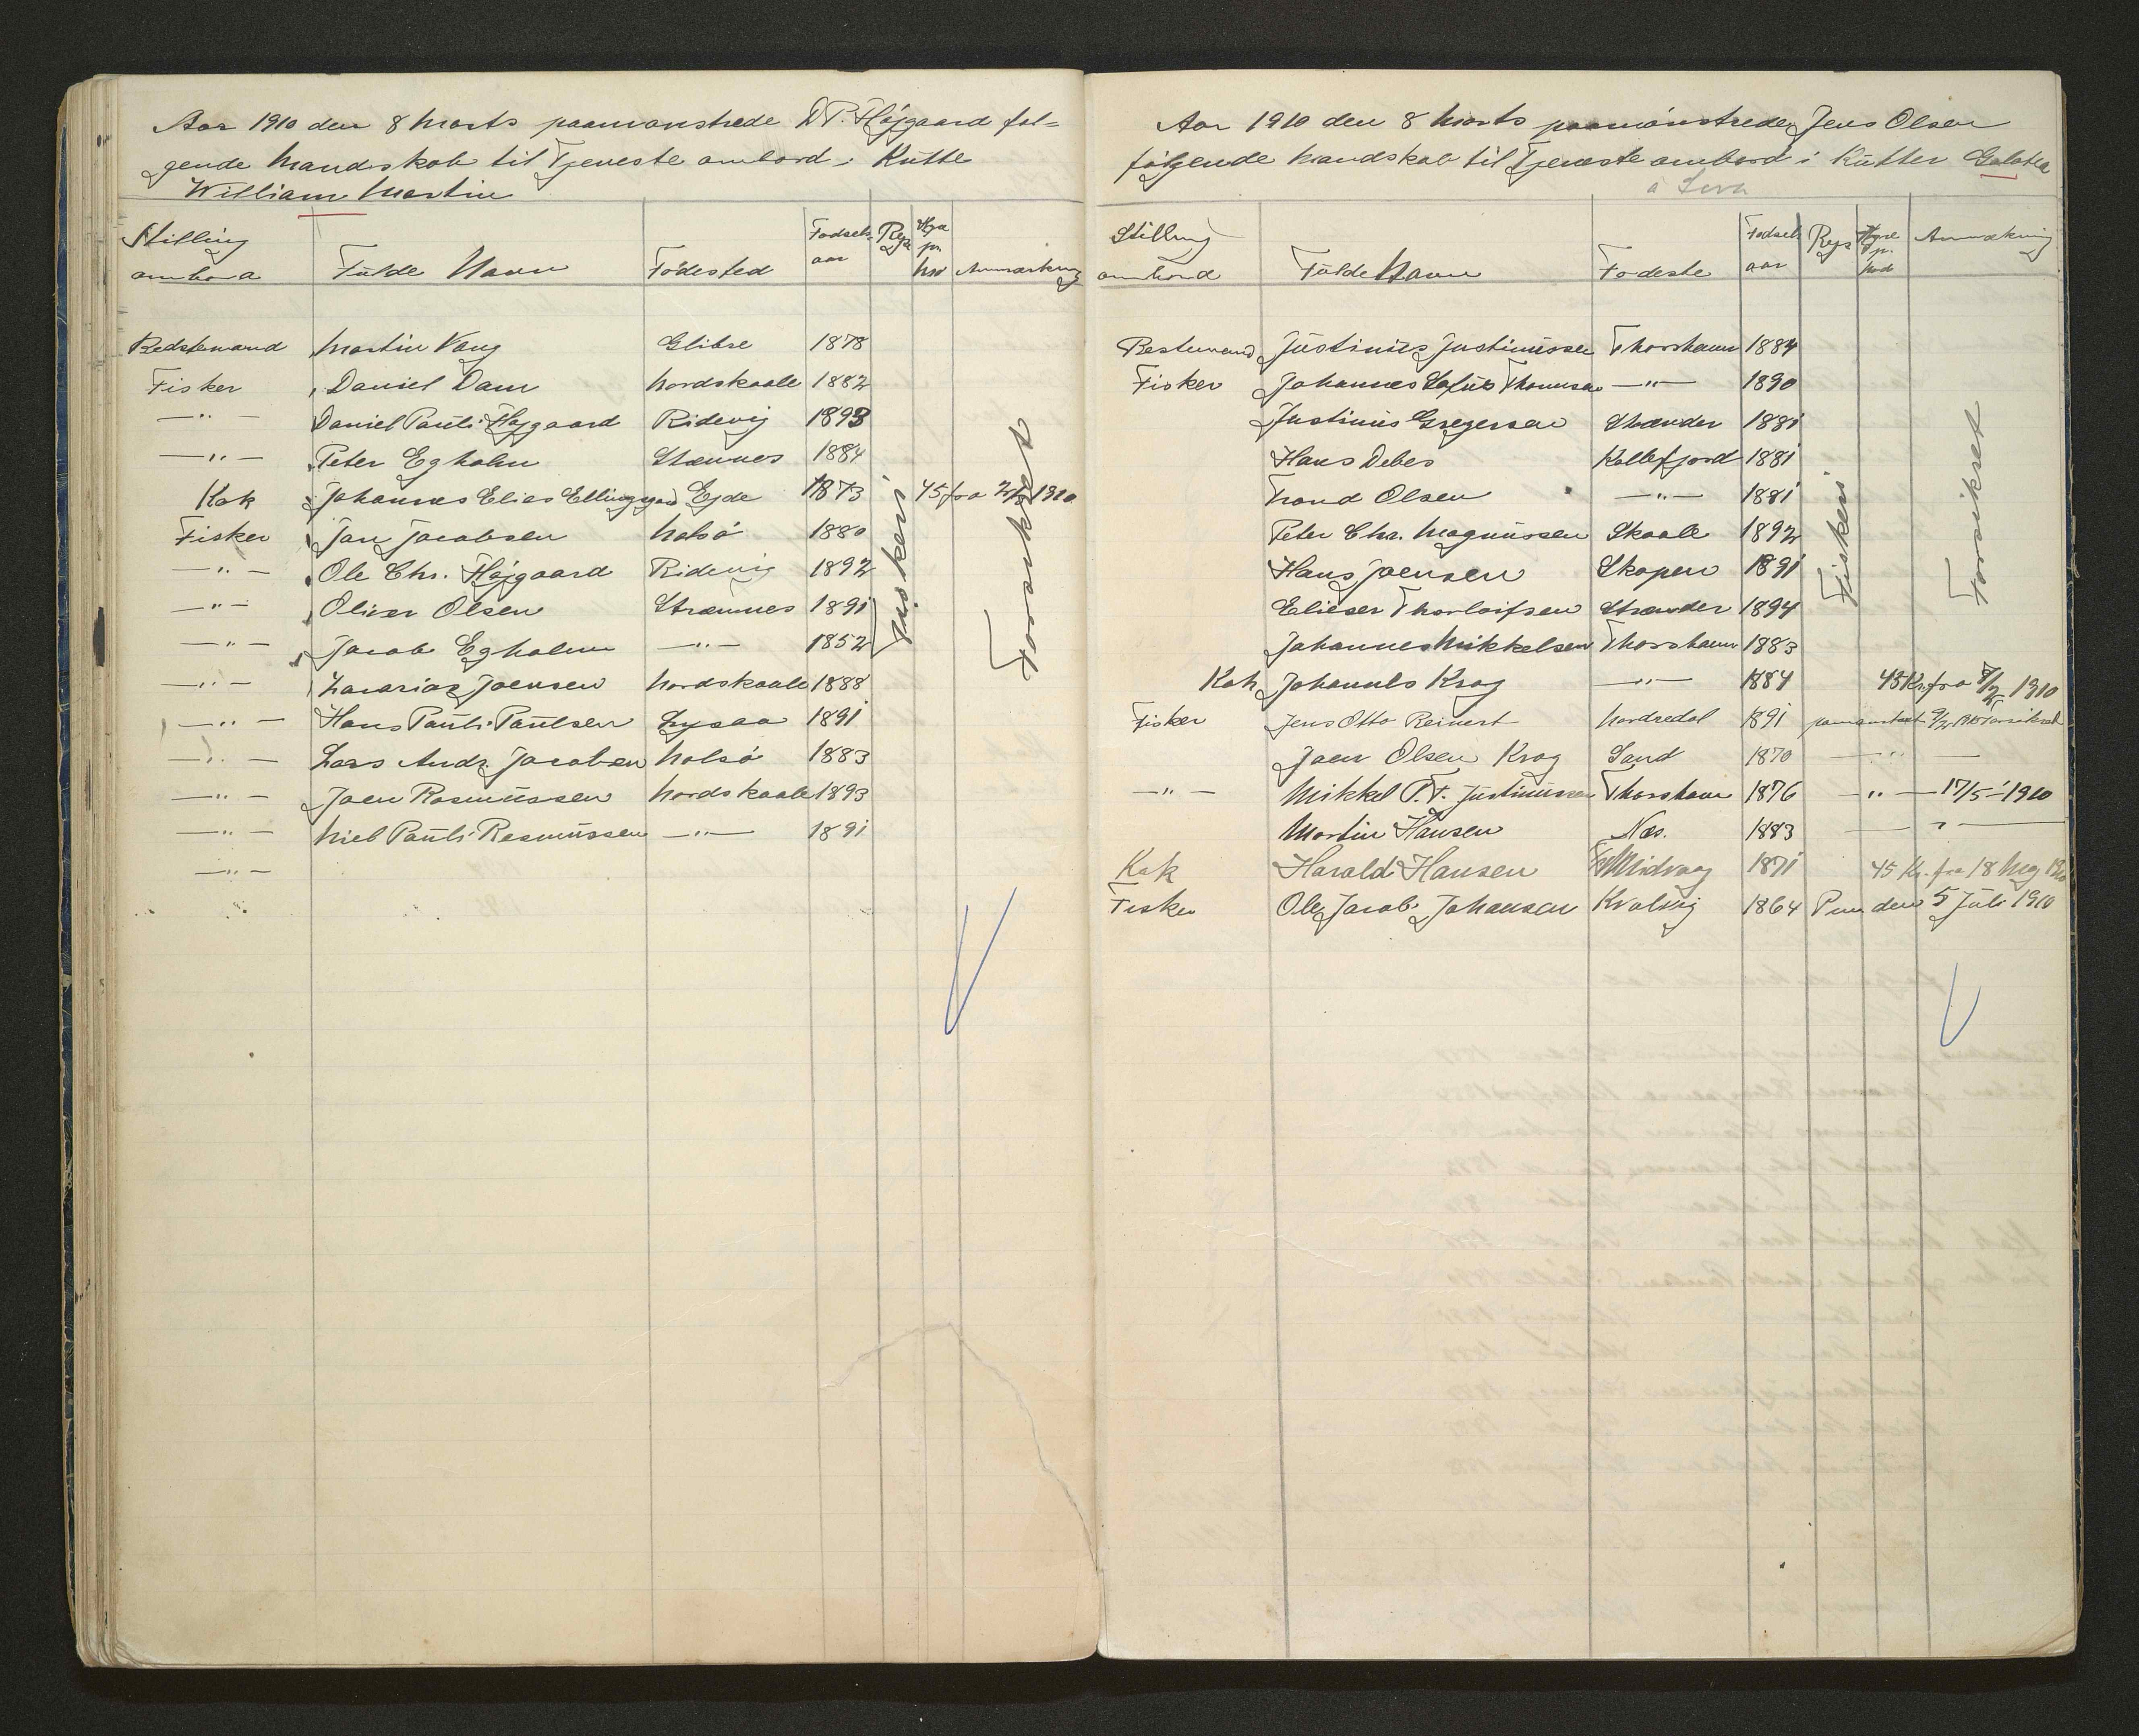 Aar 1910 den 8 Marts paamønstrede D P. Højgaard føl=
gende Mandskab til Tjeneste ombord i Kutte
William Martin
Stilling ombord Fulde Navn Fødested Fødsels aar Rejs Hyre pr. Md Anmærkning
Bedstemand Martin Vang Glibre 1878
Fisker Daniel Dam Nordskaale 1882
—"— Daniel Pauli Højgaard Ridevig 1893
—"— Peter Egholm Strænnes 1884
Kok Johannes Elias Ellingsgaard Ejde 1873 45 fra 1910
Fisker Jan Jacobsen Nolsö 1880
—"— Ole Chr. Højgaard Ridevig 1892
—"— Oliver Olsen Strænnes 1891
—"— Jacob Egholm —"— 1852
—"— Zacarias Joensen Nordskaale 1888
—"— Hans Pauli Paulsen Lysaa 1891
—"— Lars Andr. Jacobsen Nolsö 1883
—"— Joen Rasmussen Nordskaale 1893
—"— Niels Pauli Rasmussen —"— 1891
—"—
Fiskeri
Forsikret
Aar 1910 den 8 Marts paamönstredes Jens Olsen
følgende Mandskab til Tjeneste ombord i Kutter Galatea
Stilling ombord Fulde Navn Fødeste Fødsels aar Rejs Hyre pr. Md Anmærkning
Bestemand Justinus Justinussen Thorshavn 1884
Fisker Johannes Thomsen —"— 1890
Justinus Gregersen Strænder 1881
Hans Debes Kollefjord 1881
Trond Olsen —"— 1881
Peter Chr. Magnussen Skaale 1892
Hans Joensen Skopen 1891
Elieser Thorleifsen Strænder 1894
Johannes Mikkelsen Thorshavn 1883
Kok Johannes Krog —"— 1884 45 Kr. fra 8/3 1910
Fisker Jens Otto Reinert Nordredal 1891 paamønstret Forsikret
Joen Olsen Krog Sand 1870 —"—
—"— Mikkel P.F. Justinussen Thorshavn 1876 —"— 17/5-1910
Martin Hansen Næs. 1883 —"—
Kok Harald Hansen Midvaag 1871 45 Kr. fra 18 Maj 1910
Fisker Ole Jacob Johansen Kvalvig 1864 Paam den 5 Juli 1910
Fiskeri
Forsikret